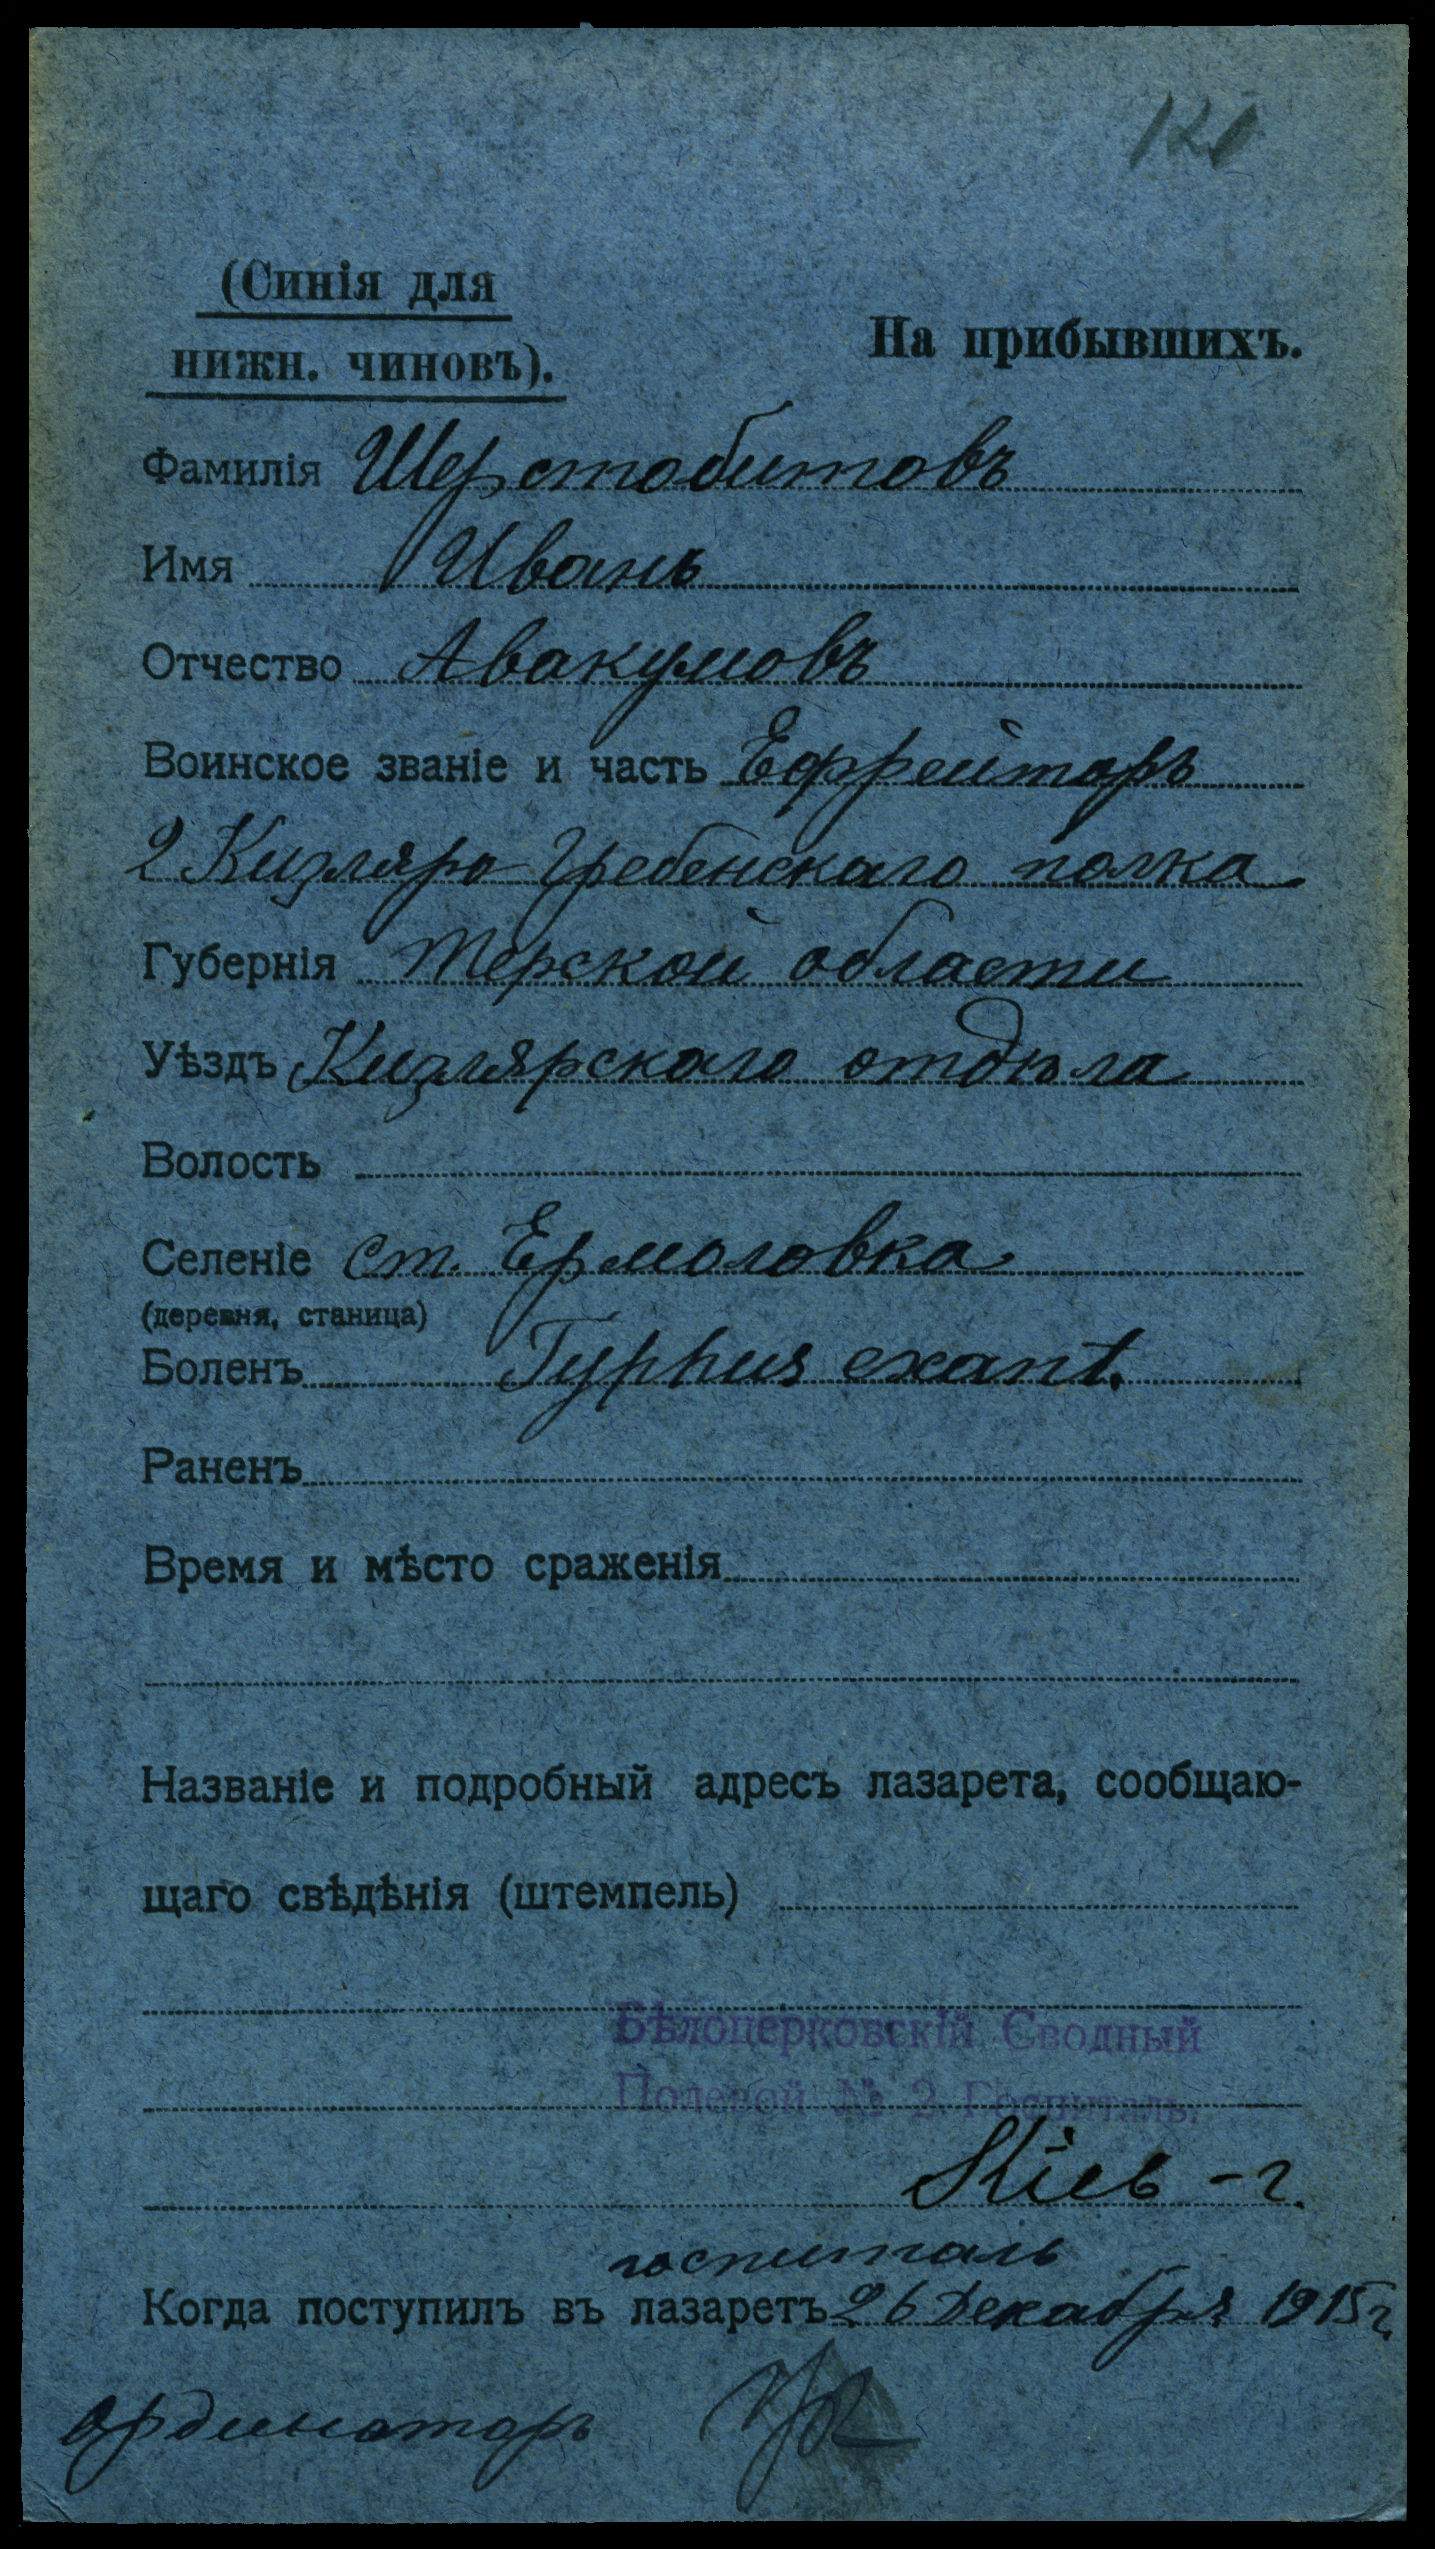 (Синія для
нижн. чиновъ).
На прибывшихъ.
Фамилія Шерстобитовъ
Имя Иванъ
Отчество Авакумовъ
Воинское званіе и часть Ефрейторъ
2 Кизляро Гребенскаго полка
Губернія Терской области
Уѣздъ Кизлярскаго отдѣла
Волость
Селеніе ст. Ермоловка
(деревня, станица)
Боленъ Typhus exant.
Раненъ
Время и мѣсто сраженія
Названіе и подробный адресъ лазарета, сообщаю-
щаго свѣдѣнія (штемпель)
Бѣлоцерковскій Сводный
Полевой № 2 Госпиталь.
Кіев - г.
госпиталь
Когда поступилъ въ лазаретъ 26 Декабря 1915 г.
ординаторъ